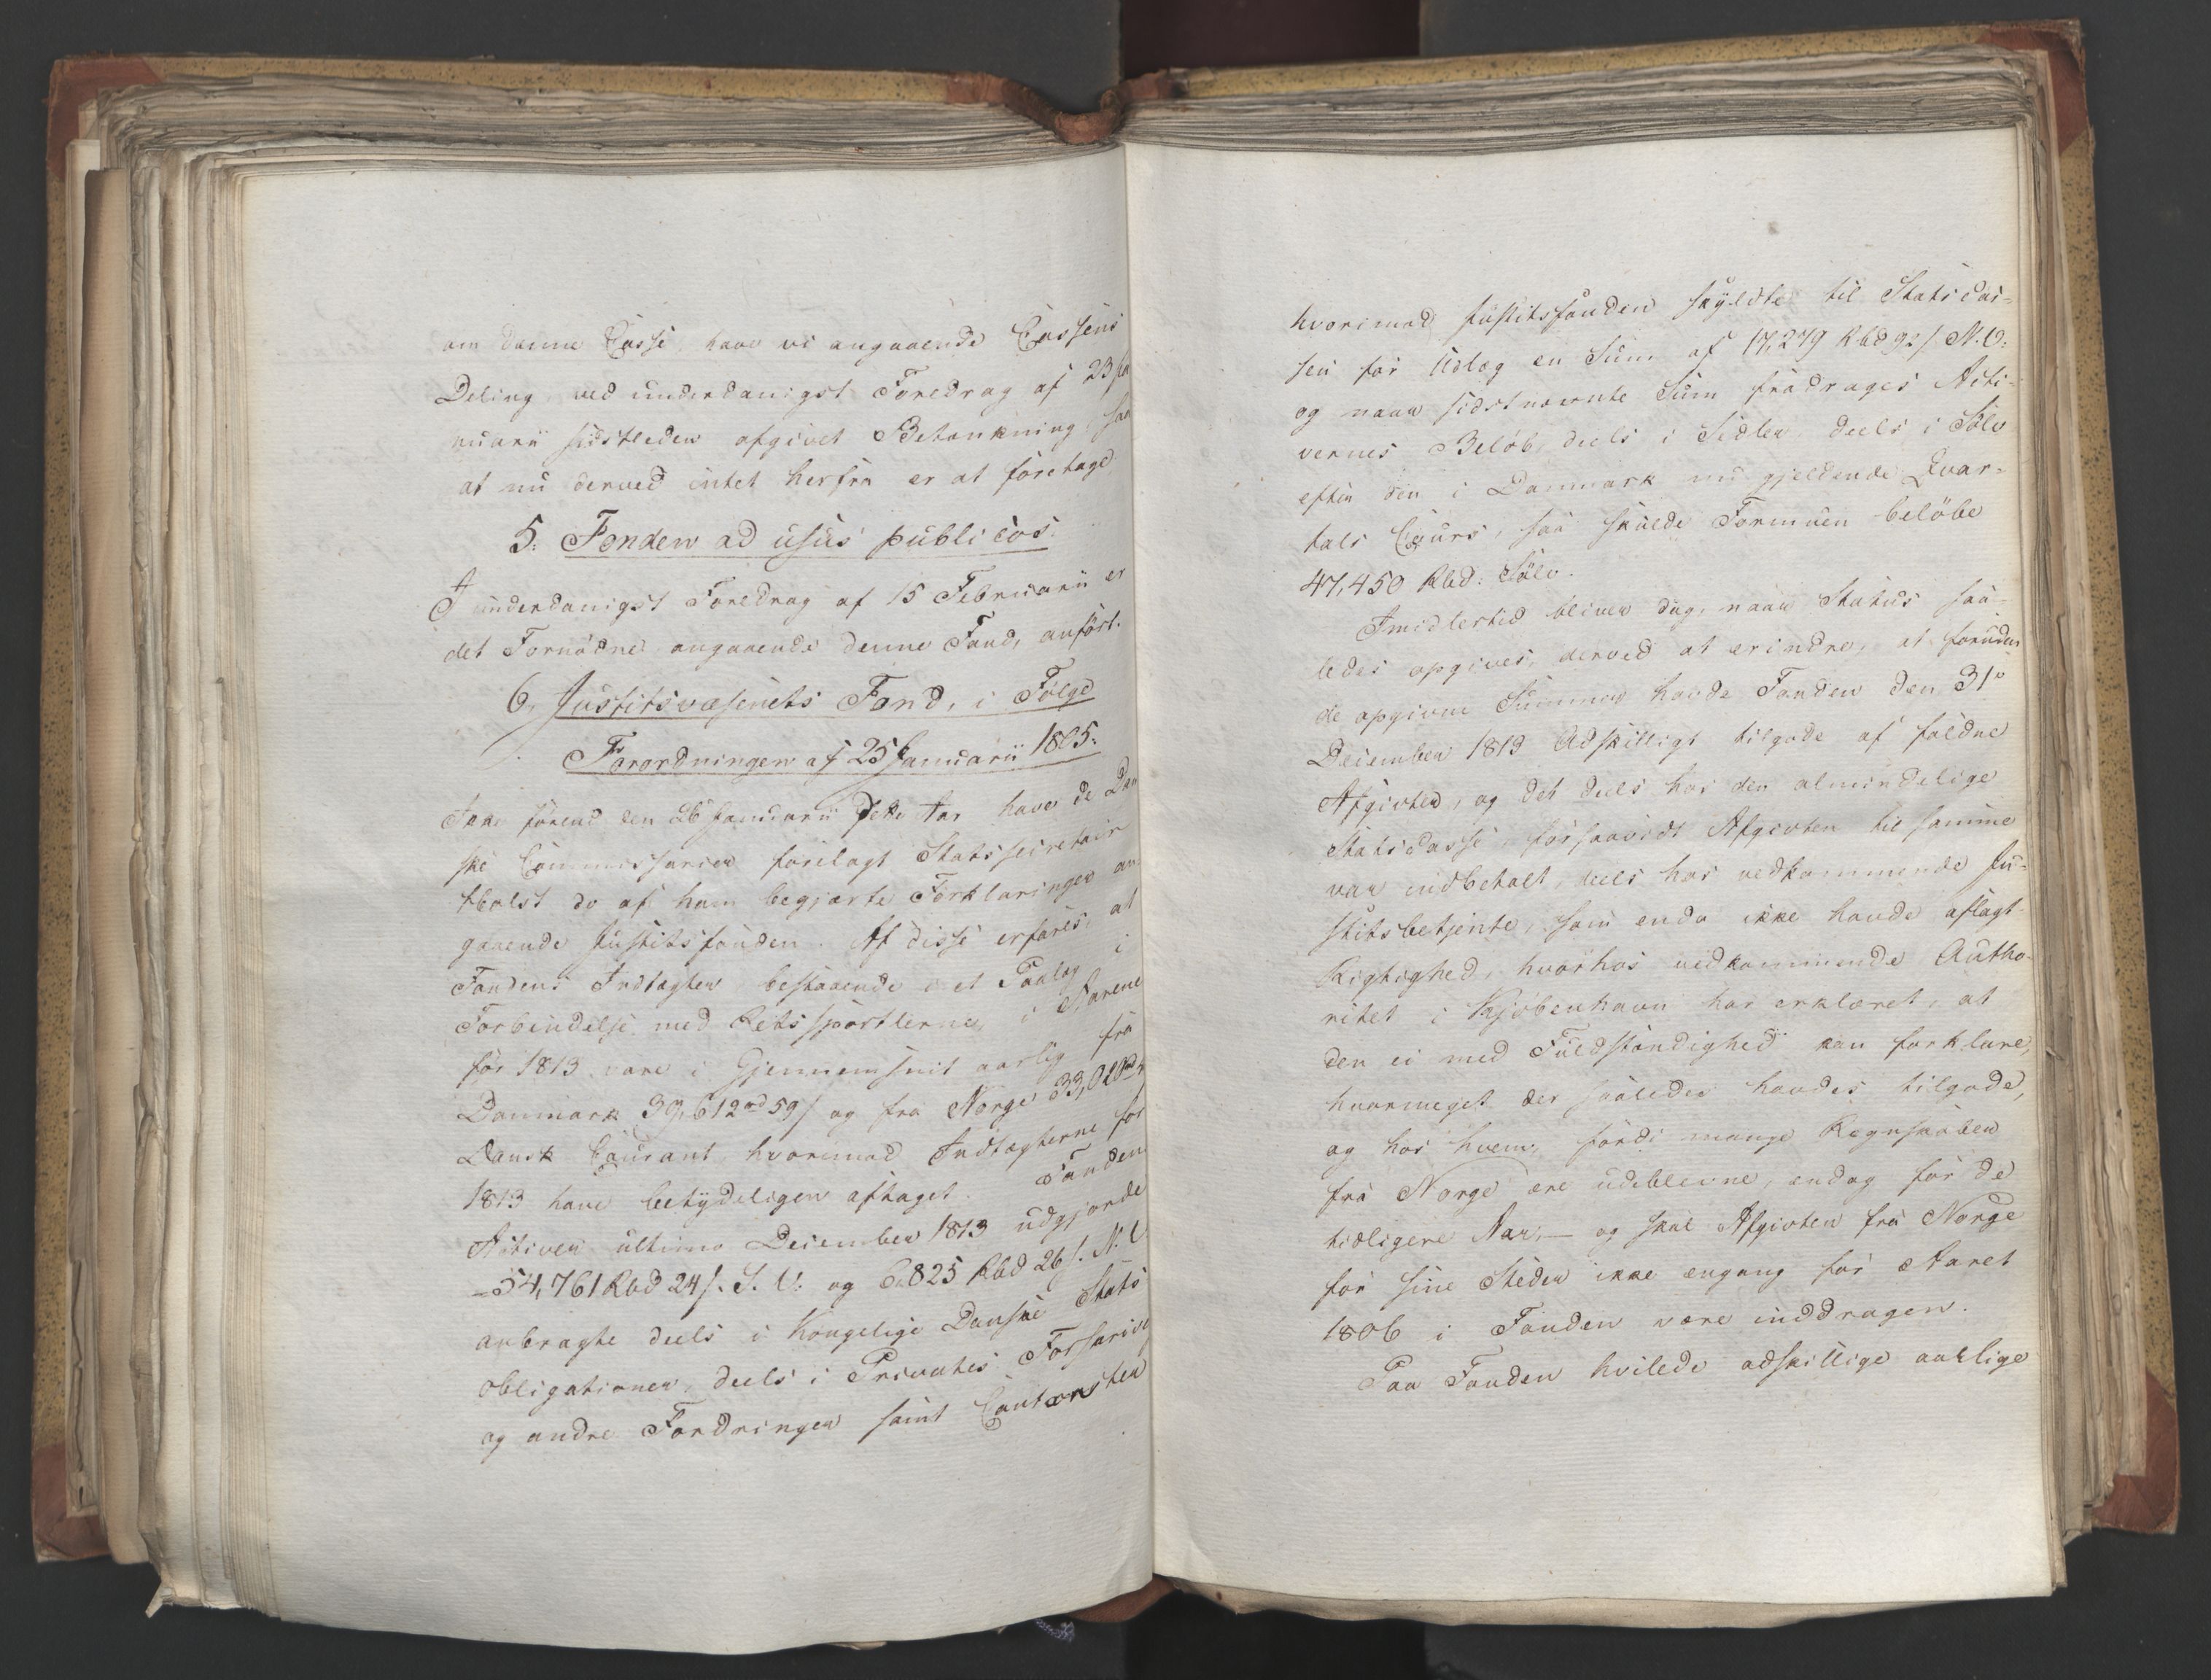 om denne Casse, have vi angaaende Cassens
Deling, ved underdanigst Foredrag af 23 Ja
nuarii sidstleden afgivet Betænkning, saa
at nu derved intet herfra er at foretage
5. Fonden ad usus publicos.
I underdanigst Foredrag af 15 Februarii er
det Fornødne angaaende denne Fond, anført.
6, Justitsvæsenets Fond, i Følge
Forordningen af 25 Januarii 1805.
Ikke førend den 26 Januarii dette Aar have de Dan
ske Commissarier forelagt Statssecretair
Holst de af ham begjærte Forklaringer an
gaaende Justitsfonden. Af disse erfares, at
Fondens Indtægter, bestaaende i et Paalæg i
Forbindelse med Retssportlerne, i Aarene
før 1813 vare i Gjennemsnit aarlig fra
Danmark 39,612 rd 59 s og fra Norge
Dansk Courant, hvorimod Indtægterne for
1813 have betydeligen aftaget. Fonden
Activer ultimo December 1813 udgjorde
54,761 Rbd 24 s. S. V. og 825 Rbd 26 s. N. V.
anbragte deels i Kongelige Danske Stats
obligationer, deels i Privates Forskriv
og andre Fordringer samt
hvorimod Justitsfonden skyldte til Statscas-
sen for Udlæg en Sum af 17,279 Rbd 92 s N. V.
og naar sidstnævnte Sum fradrages Acti-
vernes Beløb, deels i Sedler deels i Sølv
efter den i Danmark nu gjeldende Qvar-
tals Cours, saa skulde Formuen beløbe
47,450 Rbd. Sølv.
Imidlertid bliver dog, naar Status saa-
ledes opgives, derved at erindre, at foruden
de opgivne Summer havde Fonden den 31te
December 1813 Adskilligt tilgode af faldne
Afgivter, og det deels hos den almindelige
Statscasse, forsaavidt Afgivten til samme
var indbetalt, deels hos vedkommende Ju-
stitsbetjente, som enda ikke havde aflagt
Rigtighed, hvorhos vedkommende Autho-
ritet i Kjøbenhavn har erklæret, at
den ei med Fuldstændighed kan forklare,
hvormeget der saaledes havdes tilgode,
og hos hvem, fordi mange Regnskaber
fra Norge ere udeblevne, endog for de
tidligere Aar, — og skal Afgivten fra Norge
for sine Steder ikke engang for Aaret
1806 i Fonden være inddragen.
Paa Fonden hvilede adskillige aarlige